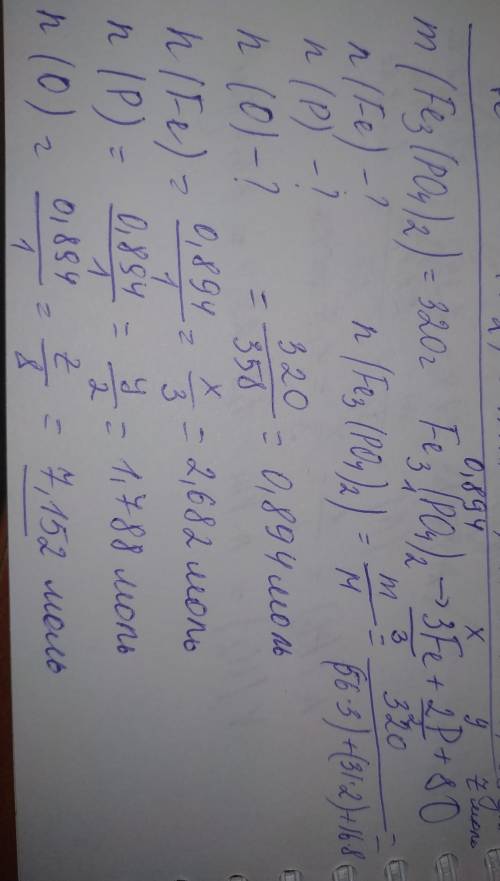 m(Fe₃(PO₄)₂) = 320г
n(Fe) - ?
n(P) - ?
n(O) - ?
0,894 x y z моль
Fe₃(PO₄)₂ → 3Fe + 2P + 8O
1 3 2
n(Fe₃(PO₄)₂) = m/M = 320/(56·3)+(31·2)+16·8 =
= 320/358 = 0,894 моль
n(Fe) = 0,894/1 = x/3 = 2,682 моль
n(P) = 0,894/1 = y/2 = 1,788 моль
n(O) = 0,894/1 = z/8 = 7,152 моль